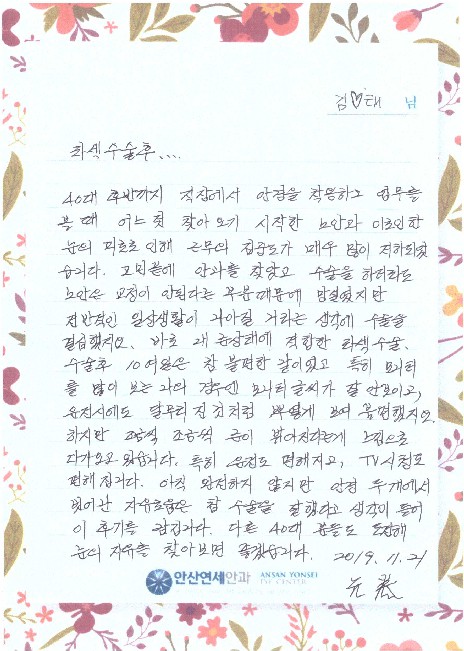 김♡태 님
라섹수술후....
40대 후반까지 직장에서 안경을 착용하고 업무를
볼 때 어느 덧 찾아오기 시작한 노안과 이로인한
눈의 피로로 인해 근무의 집중도가 매우 많이 저하되었
습니다. 고민끝에 안과를 찾았고 수술을 하더라도
노안은 교정이 안된다는 부분때문에 망설였지만
전반적인 일상생활이 나아질 거라는 생각에 수술을
결심했지요. 바로 내 눈상태에 적합한 라섹수술.
수술후 10여일은 참 불편한 날이었고 특히 모니터
를 많이 보는 나의 경우엔 모니터글씨가 잘 안보이고,
운전시에도 달무리 진 것처럼 뿌옇게 보여 불편했지요.
하지만 조금씩 눈이 밝아진다는게 느낌으로
다가오고 있습니다. 특히 운전도 편해지고, TV시청도
편해집니다. 아직 완전하지 않지만 안경 두개에서
벗어난 자유로움은 참 수술을 잘했다고 생각이 들어
이 후기를 남깁니다. 다른 40대 분들도 도전해
눈의 자유를 찾아보면 좋겠습니다. 2019. 11. 21
안산연세안과 ANSAN YONSEI EYE CENTER